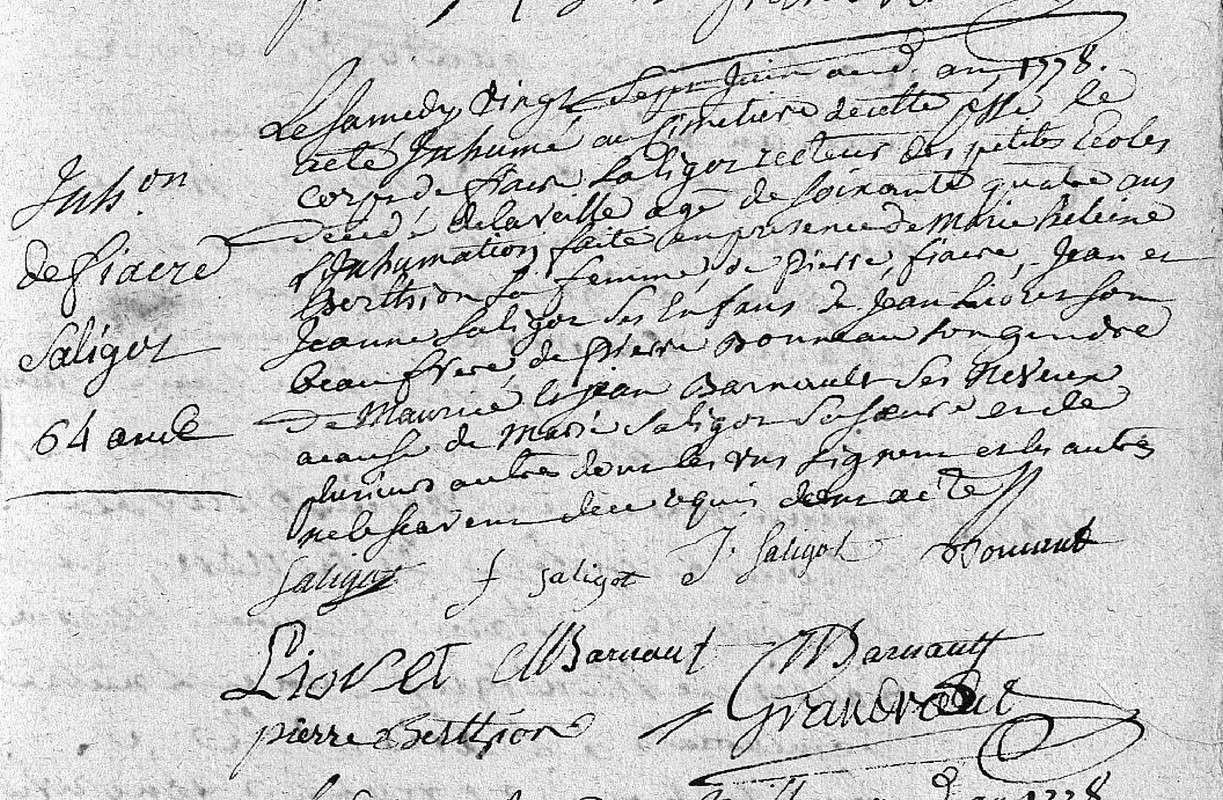 Inh.on
de fiacre
Saligot
64 ans
Le Samedy vingt Sept Juin aud. an 1778.
a eté Inhumé au Cimetiere de cette psse le
corps de fiacre Saligot recteur des petites Ecoles
decedé de la veille agé de Soixante quatre ans
l'Inhumation faite en presence de Marie heleine
Berthion Sa femme, de Pierre, fiacre, Jean et
Jeanne Saligot Ses Enfans de Jean Liovet Son
beaufrere, de Pierre Bonneau Son gendre
de Maurice et jean Barnault Ses Neveux
a cause de Marie Saligot Sa Sœure et de
plusieurs autres dont les uns Signent et les autres
ne le scavent de ce requis dont acte
Saligot f Saligot J. Saligot
Liovet MBarnaut Barnault
pierre Berthion Grandvodet
an 1778